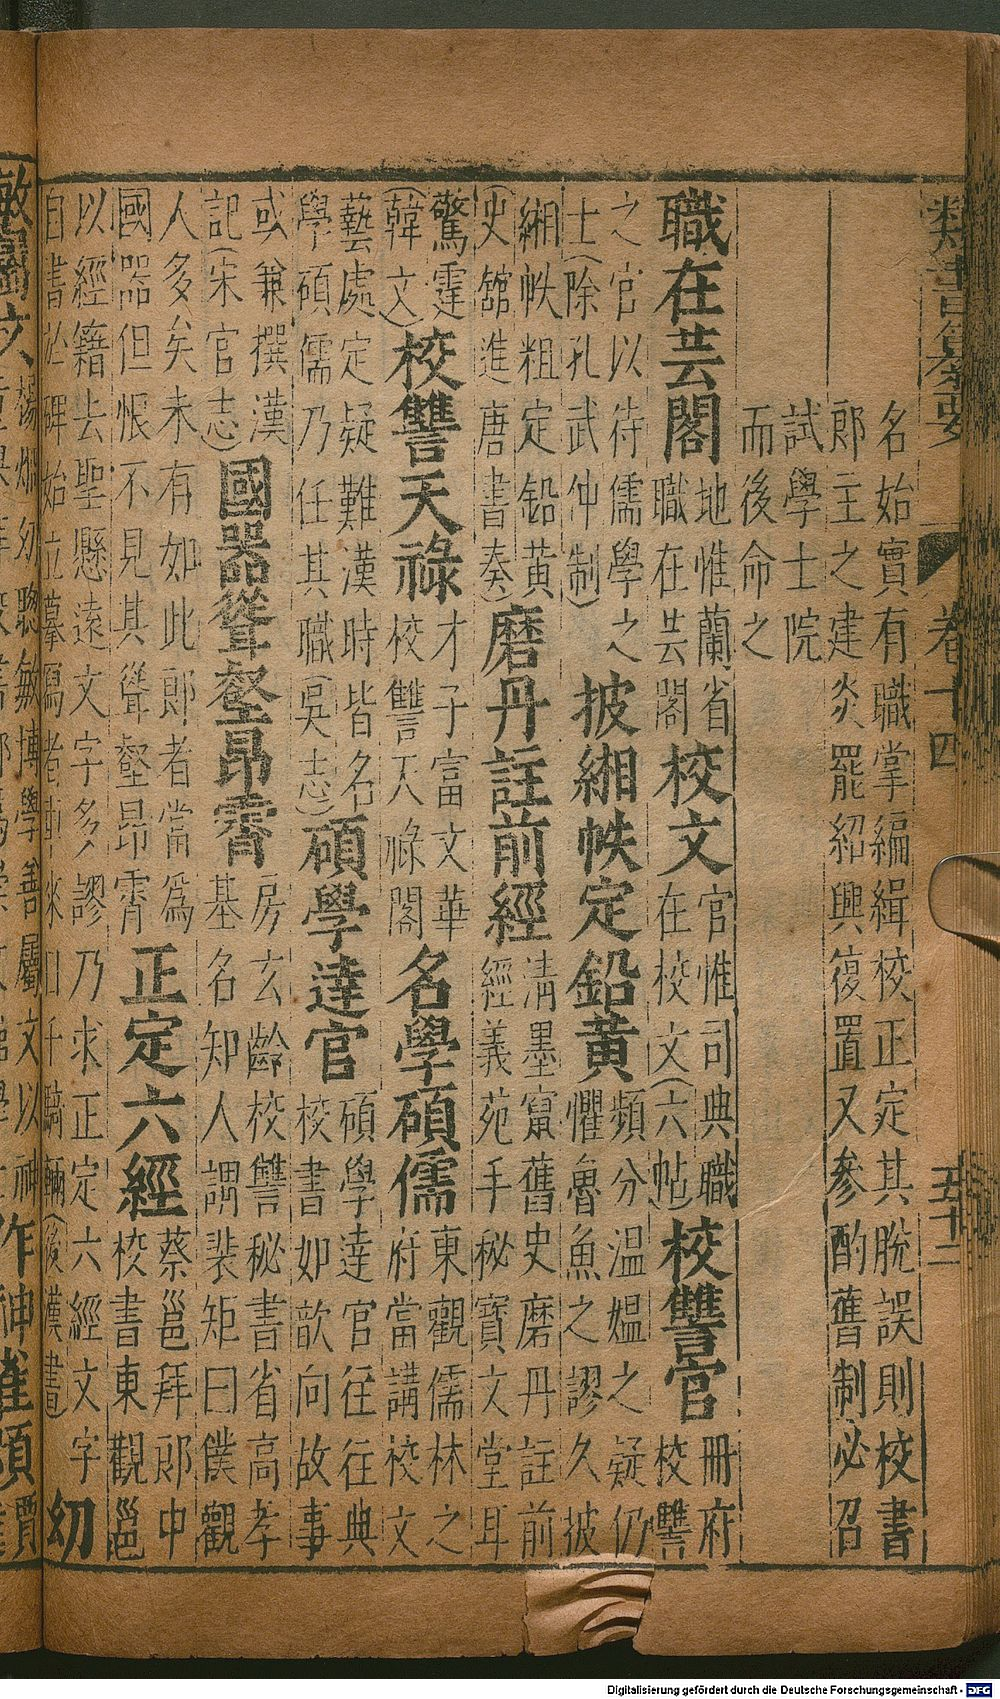 類書纂要 卷十四 五十二
名始實有職掌編緝校正定其脫誤則校書
郎主之建炎罷紹興復置又參酌舊制必召
試學士院
而後命之
職在芸閣 地惟蘭省 職在芸閣 校文 官惟司典職 在校文(六帖) 校讐官 冊府 校讐
之官以待儒學之 士(除孔武仲制) 披緗帙定鉛黄 頻分温媪之疑仍 懼魯魚之謬久披
緗帙粗定鉛黄 (史舘進唐書奏) 磨丹註前經 清墨竄舊史磨丹註前 經義苑手秘寶文堂耳
驚霆 (韓文) 校讐天祿 才子富文華 校讐天祿閣 名學碩儒 東觀儒林之 府當講校文
藝處定疑難漢時皆名 學碩儒乃任其職(吳志) 碩學達官 碩學達官往往典 校書如歆向故事
或兼撰漢 記(宋官志) 國器聳壑昂霄 房玄齡校讐秘書省高孝 基名知人謂裴矩曰僕觀
人多矣未有如此郎者當爲 國器但恨不見其聳壑昂霄 正定六經 蔡邕拜郎中 校書東觀邕
以經籍去聖懸遠文字多謬乃求正定六經文字 自書於碑始立摹寫者車乘日千輛(後漢書) 幼
敏屬文 楊烱幼聰敏博學善屬文以神 作神雀頌 賈
Digitalisierung gefördert durch die Deutsche Forschungsgemeinschaft - DFG